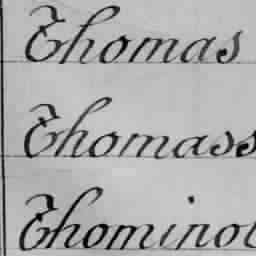 Thomas
Thomass
Thominot